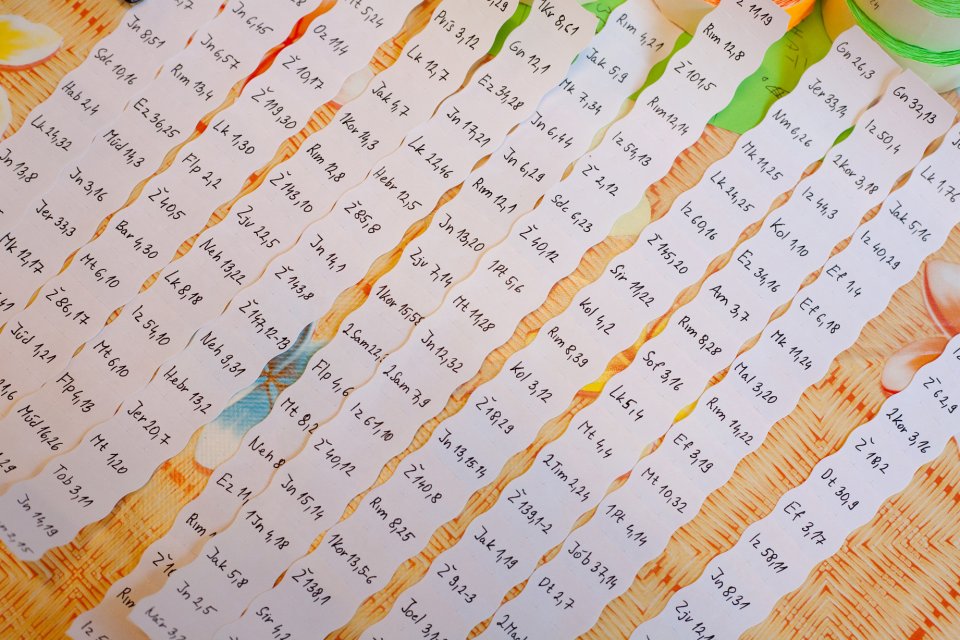 Jn 8,51
Sdc 10,16
Hab 2,4
Lk 24,32
Jn 13,8
Jn 6,45
Jn 6,57
Rim 13,4
Ez 36,25
Múd 14,3
Jn 3,16
Jer 33,3
Mk 12,17
Mt 5,24
Oz 11,4
Ž 10,17
Ž 119,30
Lk 1,30
Flp 2,2
Ž 40,5
Bar 4,30
Mt 6,10
Ž 86,17
Júd 1,21
Prís 3,12
Lk 12,7
Jak 4,7
1Kor 14,3
Rim 12,8
Ž 143,10
Zjv 22,5
Neh 13,22
Lk 8,18
Iz 54,10
Mt 6,10
Flp 4,13
Múd 16,26
1Kr 8,61
Gn 12,1
Ez 34,28
Jn 17,21
Lk 22,46
Hebr 12,5
Ž 85,8
Jn 14,1
Ž 143,8
Ž 147,12-13
Neh 9,31
Hebr 13,2
Jer 20,7
Mt 1,20
Tob 3,11
Jn 14,19
Rim 4,21
Jak 5,9
Mk 7,34
Jn 6,44
Jn 6,29
Rim 12,1
Jn 13,20
Zjv 7,14
1Kor 15,58
2Sam 22,
Flp 4,6
Mt 8,2
Neh 8
Ez 11,
Rim
Ž 11,19
Rim 12,8
Ž 101,5
Rim 12,14
Iz 54,13
Ž 2,12
Sdc 6,23
Ž 40,12
1Pt 5,6
Mt 11,28
Jn 12,32
2Sam 7,9
Iz 61,10
Ž 40,12
Jn 15,14
1Jn 4,18
Jak 5,8
Jn 2,5
Gn 26,3
Jer 33,14
Nm 6,26
Mk 11,25
Lk 24,25
Iz 60,16
Ž 145,20
Sir 11,22
Kol 4,2
Rim 8,39
Kol 3,12
Ž 18,29
Jn 13,15.14
Ž 140,8
Rim 8,25
1Kor 13,5-6
Ž 138,1
Sir 4,2
Gn 32,13
Iz 50,4
2Kor 3,18
Iz 44,3
Kol 1,10
Ez 34,16
Am 3,7
Rim 8,28
Sof 3,16
Lk 5,4
Mt 4,4
2Tim 2,24
Ž 139,1-2
Jak 1,19
Ž 9,2-3
Joel 3,1
Lk 1,76
Jak 5,16
Iz 40,29
Ef 1,4
Ef 6,18
Mk 11,24
Mal 3,20
Rim 14,22
Ef 3,19
Mt 10,32
1Pt 4,14
Jób 37,14
Dt 2,7
Ž 62,9
2Kor 3,16
Ž 18,2
Dt 30,9
Ef 3,17
Iz 58,11
Jn 8,31
Zjv 12,1